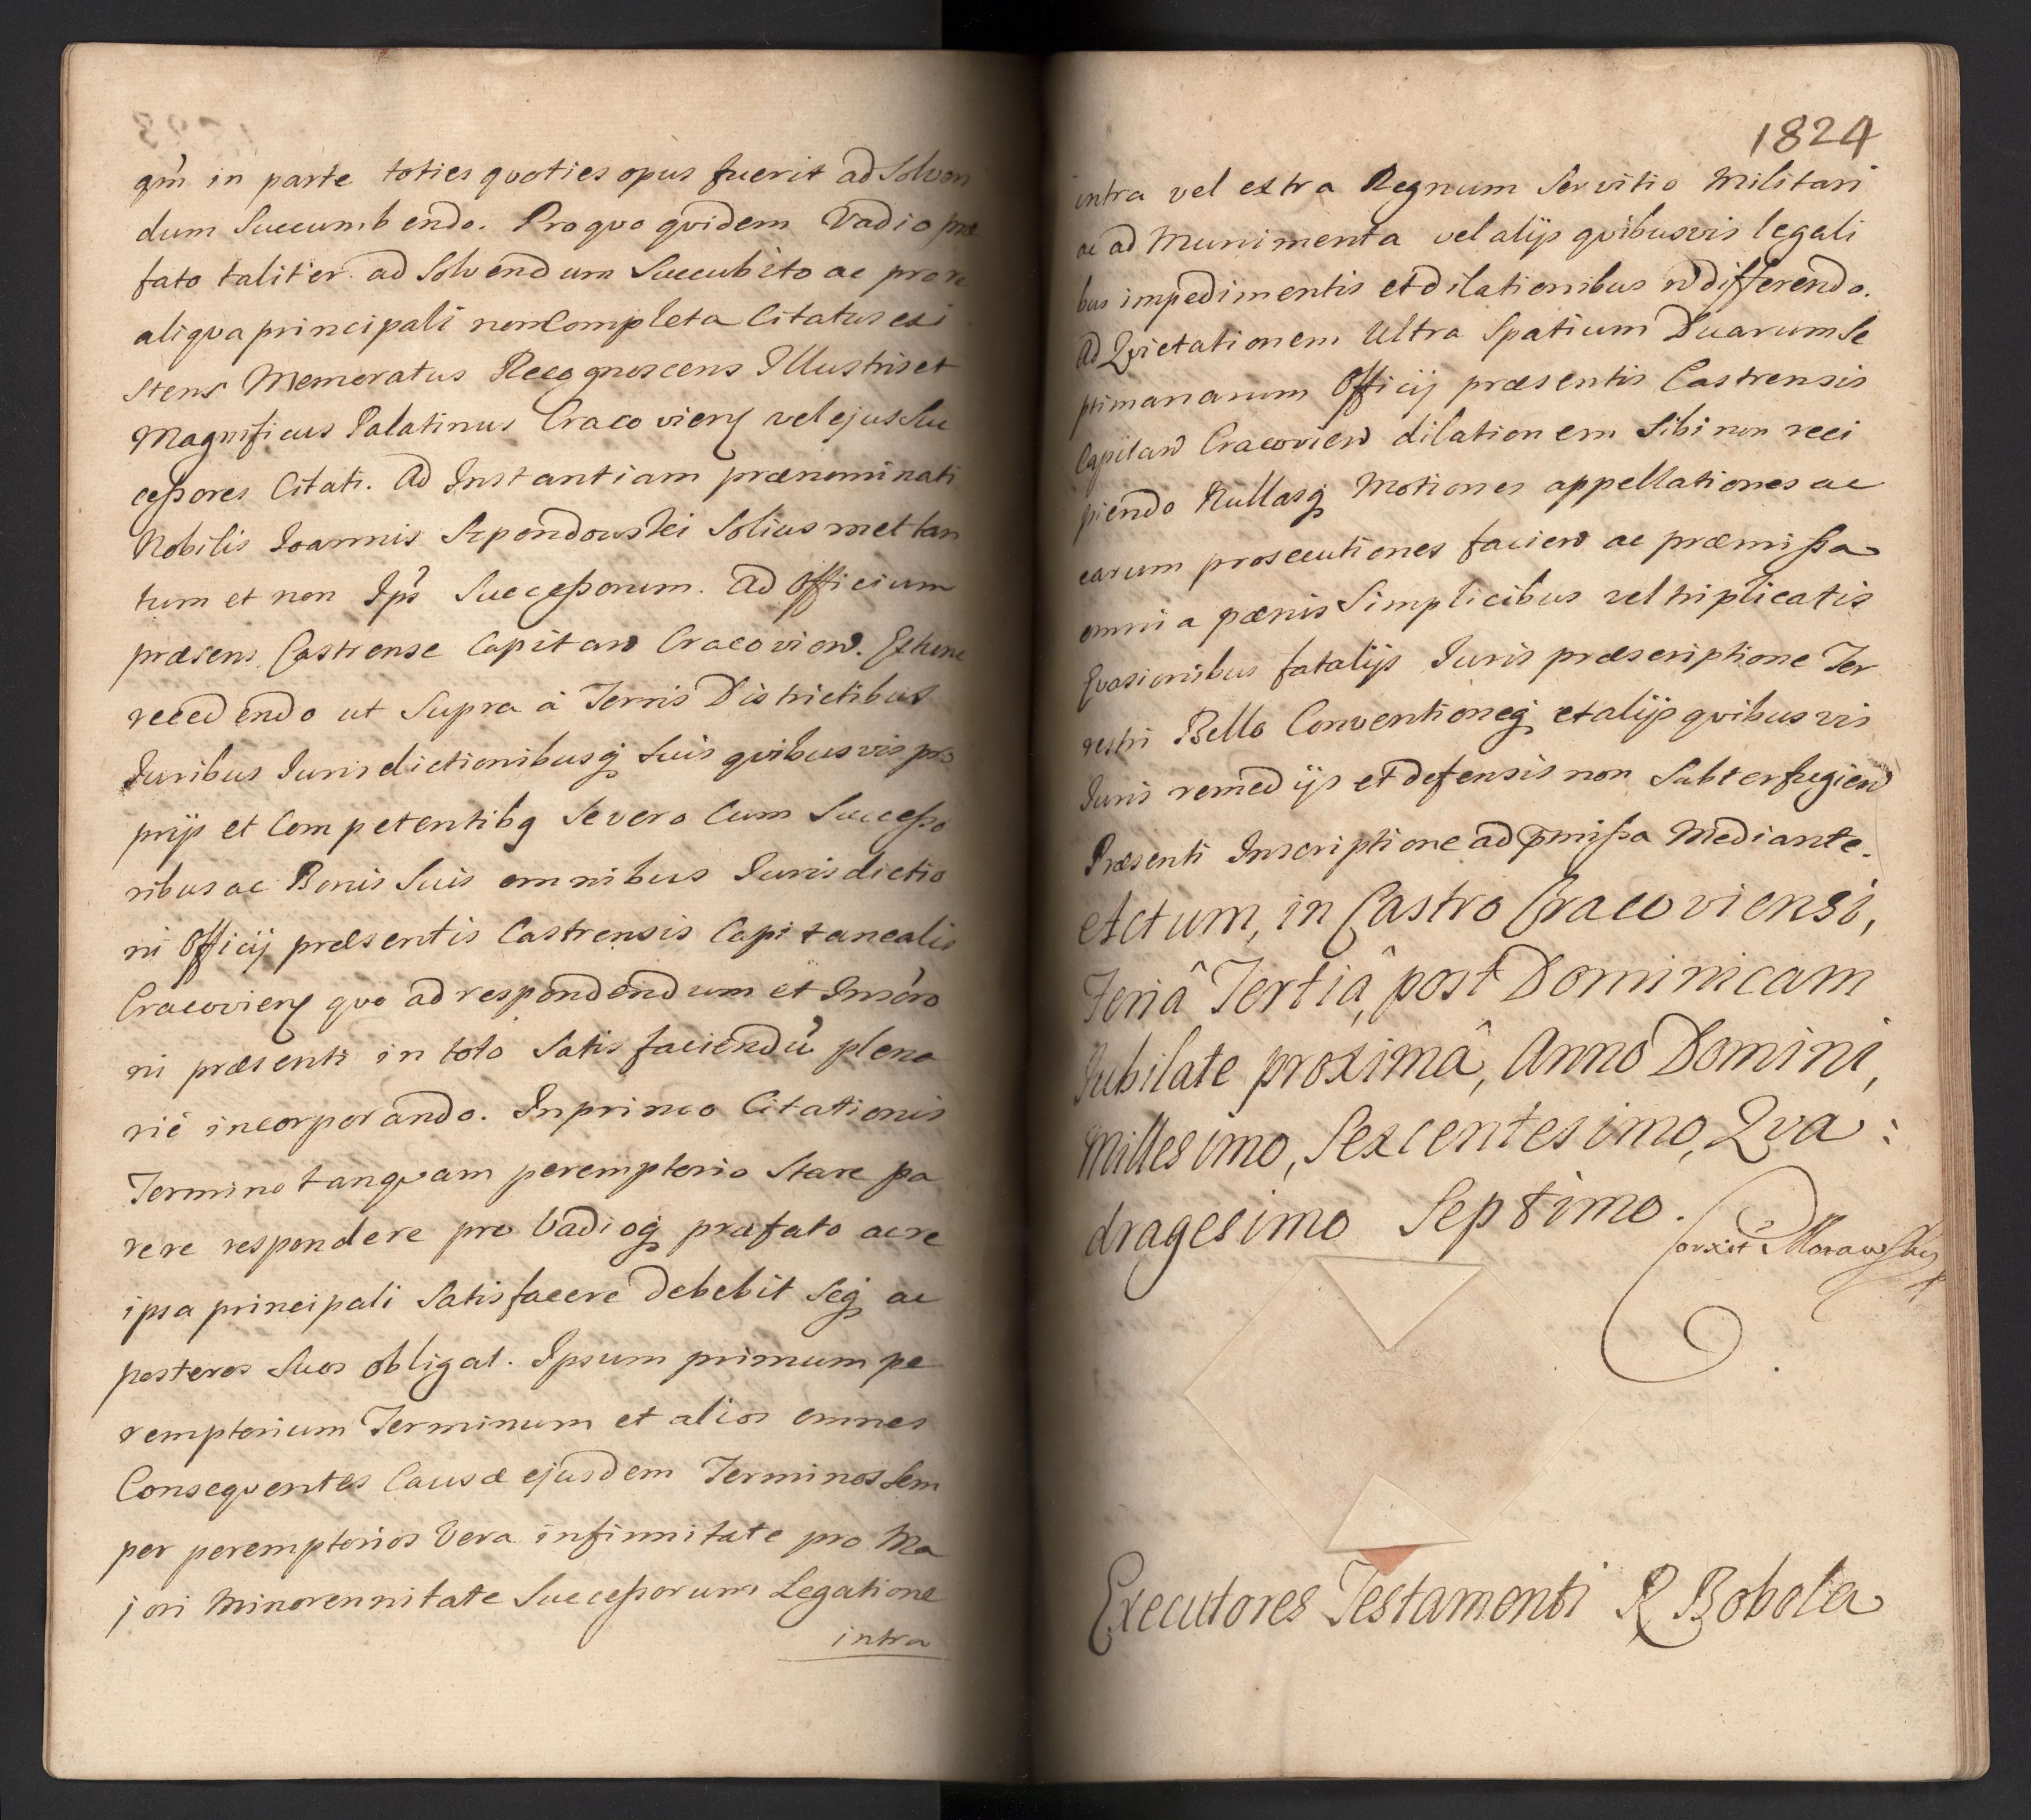 qm̃ in parte toties quoties opus fuerit ad Solven
dum Succumbendo. Pro quo quidem Vadio præ
fato taliter ad Solvendum Succubito ac pro re
aliqua principali non Completa Citatus exi
stens Memoratus Recognoscens Illustris et
Magnificus Palatinus Cracovien̄ vel ejus Suc
ceßores Citati. Ad Instantiam prænominati
Nobilis Joannis Szpondowskei Solius met tan
tum et non Ips̃ Succeßorum. Ad Officium
præsens Castrense Capitan̄ Cracovien̄. Ex tunc
recedendo ut Supra à Terris Districtibus
Juribus Jurisdictionibusq̃ Suis quibusvis pro
prijs et Competentibq Se vero Cum Succeßo
ribus ac Bonis Suis omnibus Jurisdictio
ni Officij præsentis Castrensis Capitanealis
Cracovien̄ quo ad respondendum et Inscr̃o
ni præsenti in toto Satis faciendũ plena
rie incorporando. In primo Citationis
Termino tanquam peremptorio Stare pa
rere respondere pro Vadioq̃ præfato ac re
ipsa principali Satisfacere debebit Seq̃ ac
posteros Suos obligat. Ipsum primum pe
remptorium Terminum et alios omnes
Consequentes Causæ ejusdem Terminos Sem
per peremptorios Vera infirmitate pro Ma
jori Minorennitate Succeßorum Legatione
intra
1824
intra vel extra Regnum Servitio Militari
ac ad Munimenta vel alijs quibusvis legali
bus impedimentis et dilationibus n̄ differendo.
Ad Quietationem Ultra Spatium Duarum Se
ptimanarum Officij præsentis Castrensis
Capitan̄ Cracovien̄ dilationem Sibi non reci
piendo Nullasq̃ Motiones appellationes ac
earum prosecutiones facien̄ ac præmißa
omnia pænis Simplicibus vel triplicatis
Evasionibus fatalijs Juris præscriptione Ter
restri Bello Conventioneq̃ et alijs quibusvis
Juris remedijs et defensis non Subterfugien̄
Præsenti Inscriptione ad p̄mißa Mediante.
Actum, in Castro Cracoviensi,
Feriâ Tertiâ, post Dominicam
Jubilate proximâ, Anno Domini,
Millesimo, Sexcentesimo, Qua:
dragesimo Septimo.
Corxit Morawsky
Executores Testamenti R Bobola